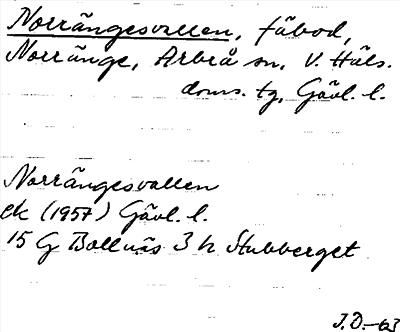 Norrängesvallen, fäbod,
Norränge, Arbrå sn, V. Häls.
doms. tg, Gävl. l.
Norrängesvallen
ek (1957) Gävl. l.
15 G Bollnäs 3 h Stubberget
J.D.-63